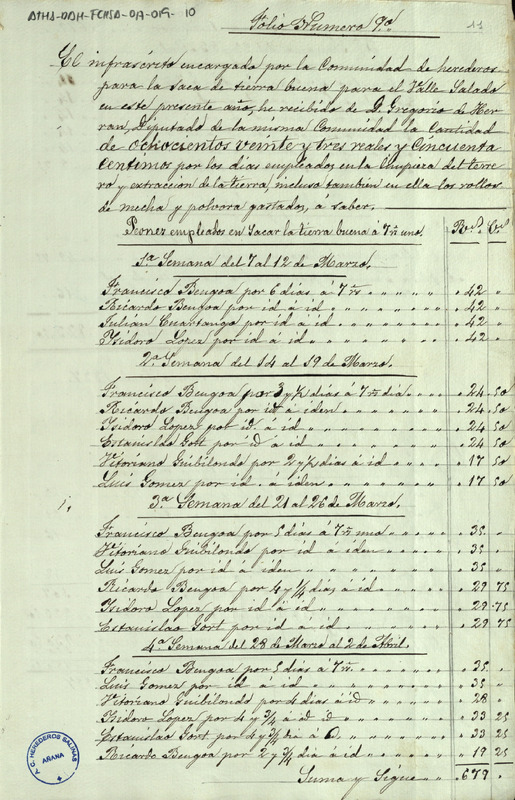 ATHA-DAH-FCHSA-OA-019-10
Folio Numero 9.º
11
El infrascrito encargado por la Comunidad de herederos
para la saca de tierra buena para el Valle Salado
en este presente año, he recibido de D. Gregorio de Her-
ran, Diputado de la misma Comunidad la cantidad
de ochocientos veinte y tres reales y cincuenta
centimos por los dias empleados en la limpieza del terre-
ro y extraccion de la tierra, incluso tambien en ella los rollos
de mecha y polvora gastados, á saber.
Peones empleados en sacar la tierra buena á 7 rs uno. Rs. Cs.
1.a Semana del 7 al 12 de Marzo.
Francisco Bengoa por 6 dias á 7 rs " 42 "
Ricardo Bengoa por id á id " 42 "
Julian Cuartango por id á id " 42 "
Ysidoro Lopez por id á id " 42 "
2.a Semana del 14 al 19 de Marzo.
Francisco Bengoa por 3 y ½ dias á 7 rs dia " 24 50
Ricardo Bengoa por id á iden " 24 50
Ysidoro Lopez por id á id " 24 50
Estanislao Gort por id á id " 24 50
Vitoriano Guibilondo por 2 y ½ dias á id " 17 50
Luis Gomez por id á iden " 17 50
3.a Semana del 21 al 26 de Marzo.
Francisco Bengoa por 5 dias á 7 rs uno " 35 "
Vitoriano Guibilondo por id á iden " 35 "
Luis Gomez por id á iden " 35 "
Ricardo Bengoa por 4 y ¼ dias á id " 29 75
Ysidoro Lopez por id á id " 29 75
Estanislao Gort por id á id " 29 75
4.a Semana del 28 de Marzo al 2 de Abril.
Francisco Bengoa por 5 dias á 7 rs " 35 "
Luis Gomez por id á id " 35 "
Vitoriano Guibilondo por 4 dias á id " 28 "
Ysidoro Lopez por 4 y ¾ á id id " 33 25
Estanislao Gort por 4 y ¾ dia á " 33 25
Ricardo Bengoa por 2 y ¾ dia á id " 19 25
Suma y Sigue " 679 "
A.C. HEREDEROS SALINAS
ARANA